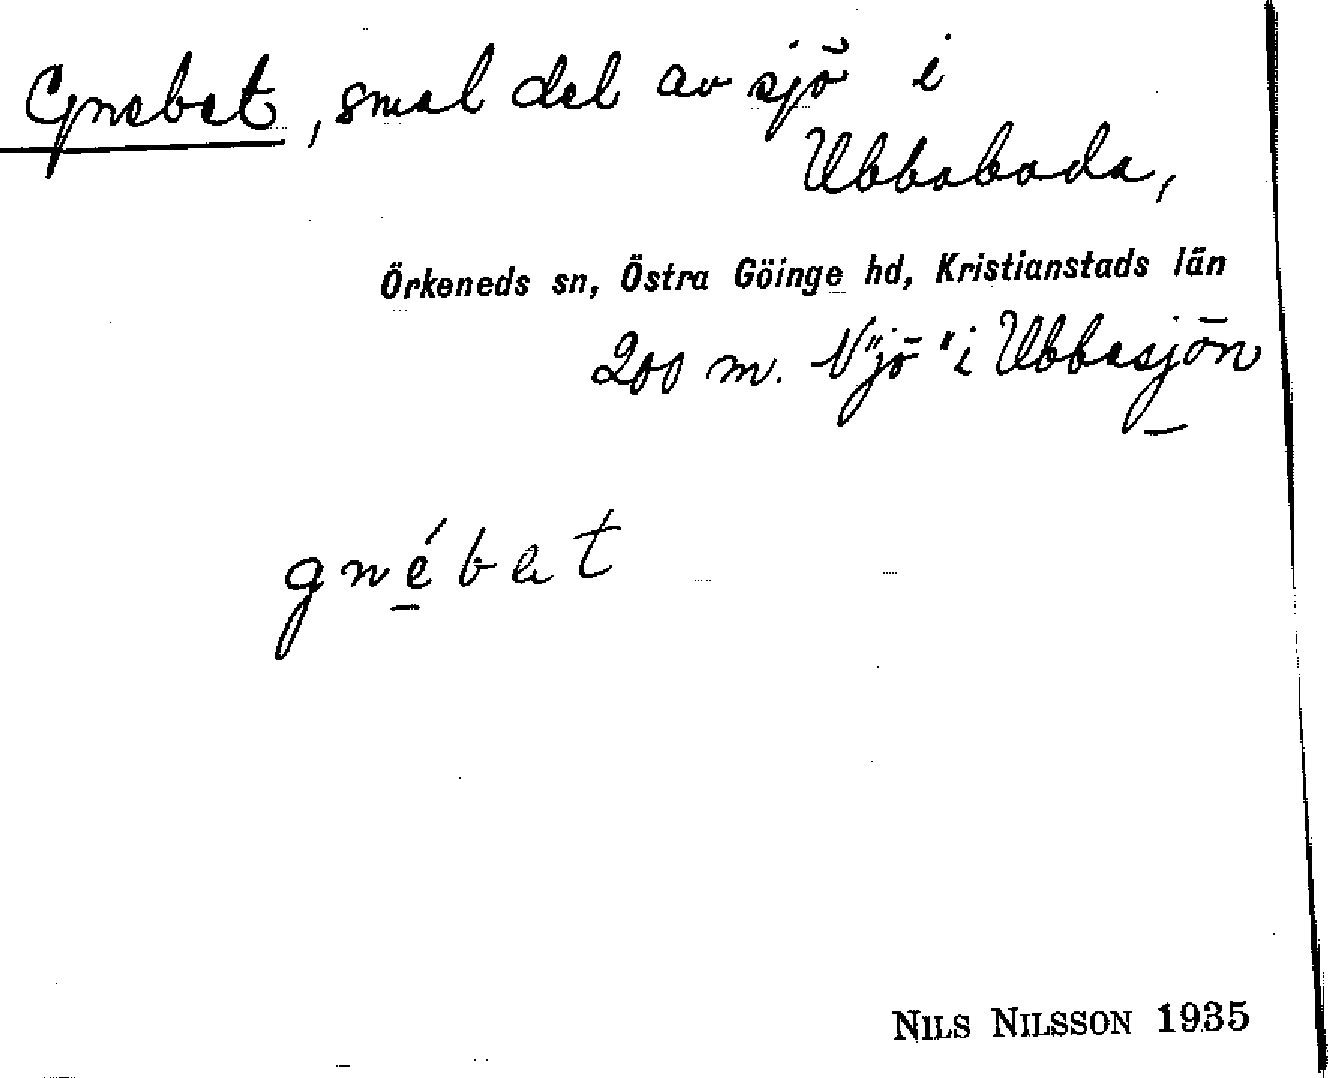 Gnebet, smal del av sjö i
Ubbaboda,
Örkeneds sn, Östra Göinge hd, Kristianstads län
200 m. N "jö" i Ubbasjön
gnébet
NILS NILSSON 1935